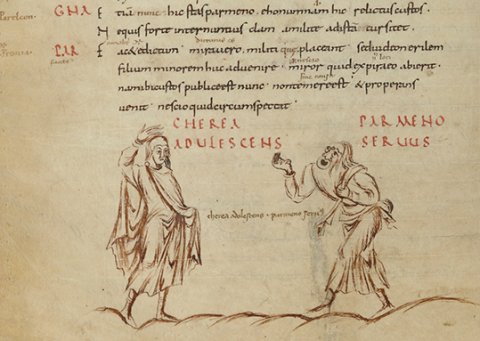 GNA tiam nunc hic stas parmeno . ehonumnam hic relictus custos .
N equis forte internuntius clam a milite ad istam cursitet .
PAR Facete dictum mira vero . militi quę placeant . sed video erilem
filium minorem huc advenire . miror quid ex piraeo abierit .
nam ibi custos publice est nunc . non temere est . & properans
venit . nescio quid circumspectat .
CHEREA PARMENO
ADULESCENS SERUUS
cherea adolescens . parmeno seruus